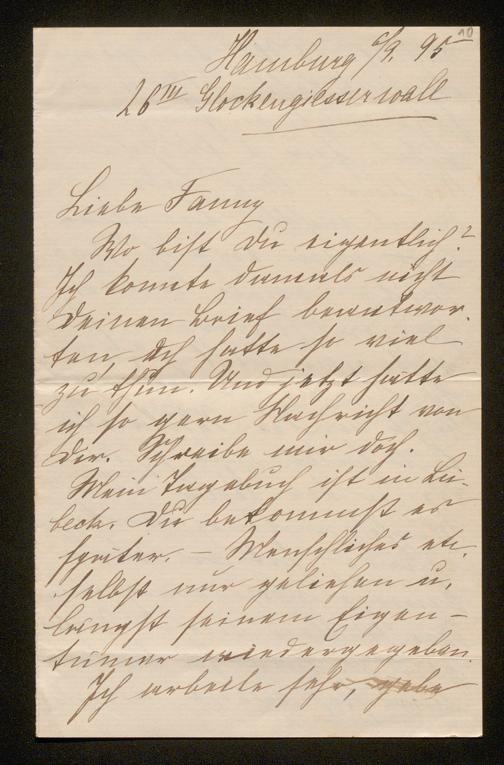 10
Hamburg 6/9. 95
26 III Glockengiesserwall
Liebe Fanny
Wo bist Du eigentlich?
Ich konnte damals nicht
Deinen Brief beantwor-
ten, ich hatte so viel
zu thun. Und jetzt hätte
ich so gern Nachricht von
Dir. Schreibe mir doch.
Mein Tagebuch ist in Lü-
beck. Du bekommst es
später. – Menschliches etc.
selbst nur geliehen u.
längst seinem Eigen-
tümer wiedergegeben.
Ich arbeite sehr, gebe